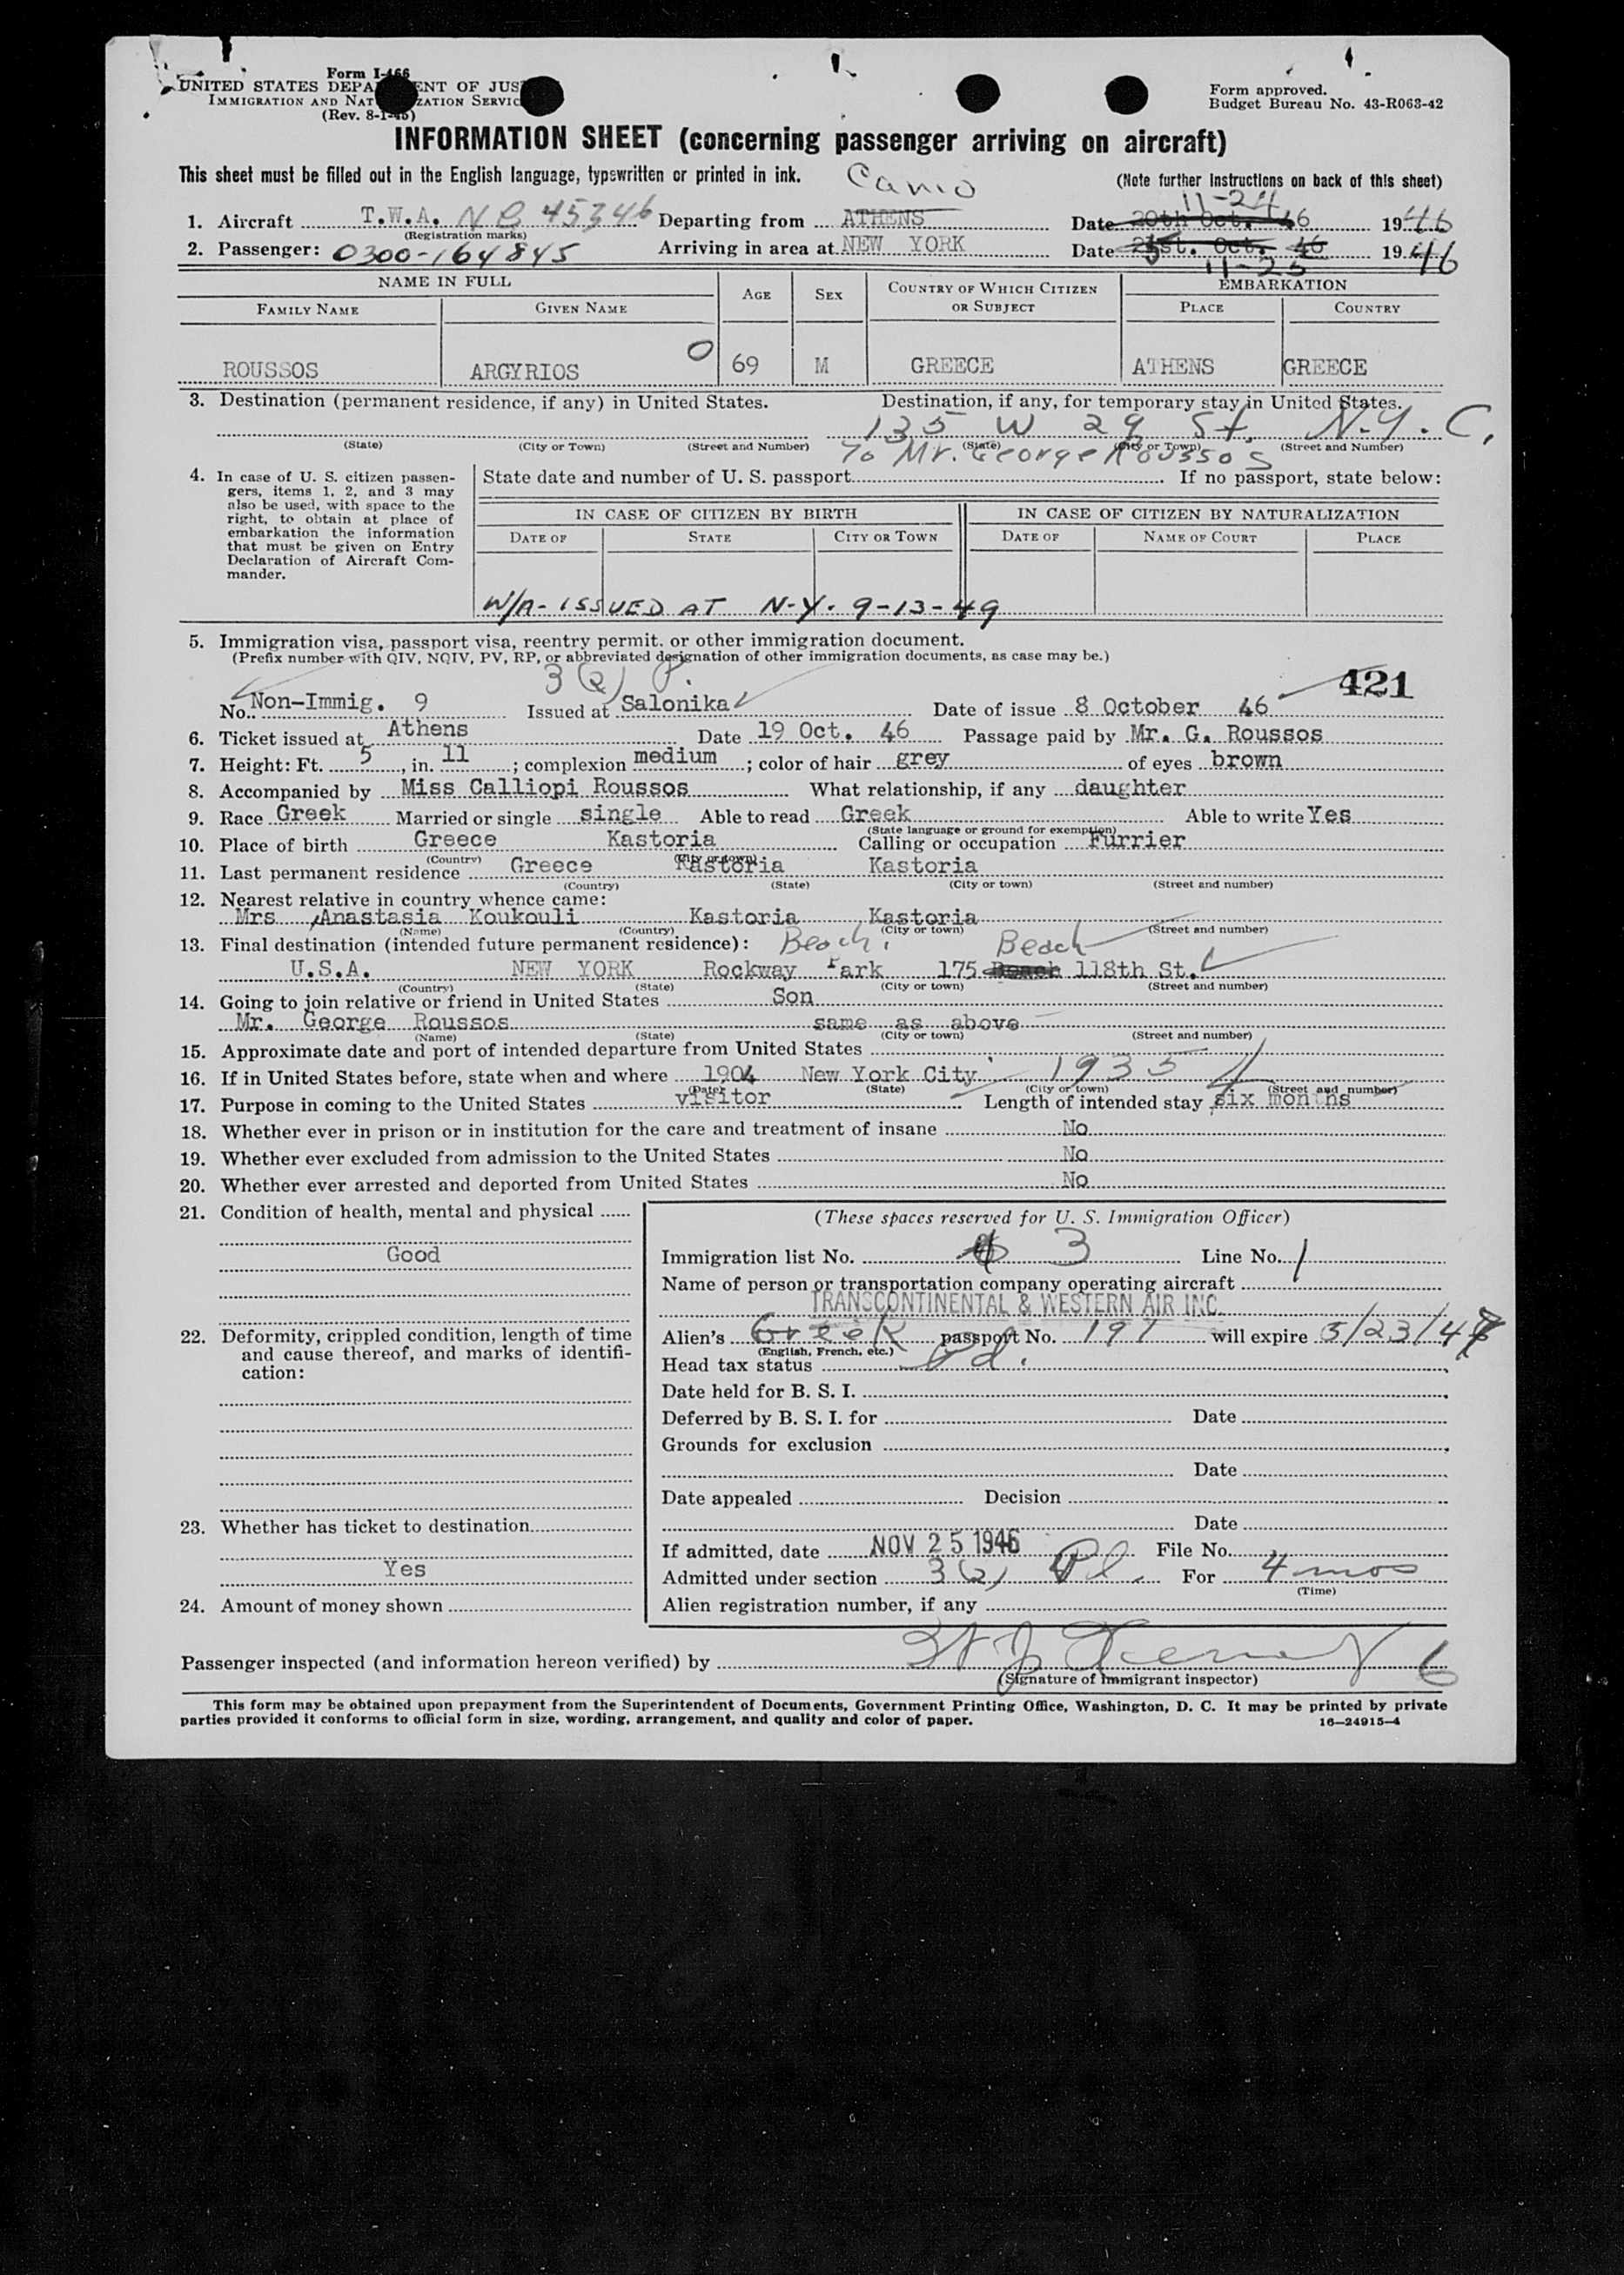 Form I-466
UNITED STATES DEPARTMENT OF JUSTICE
IMMIGRATION AND NATURALIZATION SERVICE
(Rev. 8-1-45)
Form approved.
Budget Bureau No. 43-R063-42
INFORMATION SHEET (concerning passenger arriving on aircraft)
This sheet must be filled out in the English language, typewritten or printed in ink.
(Note further instructions on back of this sheet)
Cairo 11-24
1. Aircraft T.W.A. N C 45346 Departing from ATHENS Date 20th Oct. 46 1946
(Registration marks)
2. Passenger: 0300-164845 Arriving in area at NEW YORK Date 21st. Oct. 46 1946
11-25
NAME IN FULL AGE SEX COUNTRY OF WHICH CITIZEN OR SUBJECT EMBARKATION
FAMILY NAME GIVEN NAME PLACE COUNTRY
ROUSSOS ARGYRIOS O 69 M GREECE ATHENS GREECE
3. Destination (permanent residence, if any) in United States. Destination, if any, for temporary stay in United States.
135 W 29 St. N.Y.C.
(State) (City or Town) (Street and Number) (State) (City or Town) (Street and Number)
To Mr. George Roussos
4. In case of U. S. citizen passengers, items 1, 2, and 3 may also be used, with space to the right, to obtain at place of embarkation the information that must be given on Entry Declaration of Aircraft Commander.
State date and number of U. S. passport If no passport, state below:
IN CASE OF CITIZEN BY BIRTH IN CASE OF CITIZEN BY NATURALIZATION
DATE OF STATE CITY OR TOWN DATE OF NAME OF COURT PLACE
W/A- ISSUED AT N-Y. 9-13-49
5. Immigration visa, passport visa, reentry permit, or other immigration document.
(Prefix number with QIV, NQIV, PV, RP, or abbreviated designation of other immigration documents, as case may be.)
3(2) P. 421
No. Non-Immig. 9 Issued at Salonika Date of issue 8 October 46
6. Ticket issued at Athens Date 19 Oct. 46 Passage paid by Mr. G. Roussos
7. Height: Ft. 5, in. 11; complexion medium; color of hair grey of eyes brown
8. Accompanied by Miss Calliopi Roussos What relationship, if any daughter
9. Race Greek Married or single single Able to read Greek Able to write Yes
(State language or ground for exemption)
10. Place of birth Greece Kastoria Calling or occupation Furrier
(Country) (City or town)
11. Last permanent residence Greece Kastoria Kastoria
(Country) (State) (City or town) (Street and number)
12. Nearest relative in country whence came:
Mrs Anastasia Koukouli Kastoria Kastoria
(Name) (Country) (City or town) (Street and number)
13. Final destination (intended future permanent residence): Beach. Beach
U.S.A. NEW YORK Rockway Park 175 Beach 118th St.
(Country) (State) (City or town) (Street and number)
14. Going to join relative or friend in United States Son
Mr. George Roussos same as above
(Name) (State) (City or town) (Street and number)
15. Approximate date and port of intended departure from United States
16. If in United States before, state when and where 1904 New York City 1935
(Date) (State) (City or town) (Street and number)
17. Purpose in coming to the United States visitor Length of intended stay six months
18. Whether ever in prison or in institution for the care and treatment of insane No
19. Whether ever excluded from admission to the United States No
20. Whether ever arrested and deported from United States No
21. Condition of health, mental and physical
Good
22. Deformity, crippled condition, length of time and cause thereof, and marks of identification:
23. Whether has ticket to destination
Yes
24. Amount of money shown
(These spaces reserved for U. S. Immigration Officer)
Immigration list No. 3 Line No. 1
Name of person or transportation company operating aircraft
TRANSCONTINENTAL & WESTERN AIR INC.
Alien's Greek passport No. 191 will expire 5/23/47
(English, French, etc.)
Head tax status Pd.
Date held for B. S. I.
Deferred by B. S. I. for Date
Grounds for exclusion
Date
Date appealed Decision
Date
If admitted, date NOV 25 1946 File No.
Admitted under section 3(2) Pl. For 4 mos
(Time)
Alien registration number, if any
Passenger inspected (and information hereon verified) by 6
(Signature of Immigrant inspector)
This form may be obtained upon prepayment from the Superintendent of Documents, Government Printing Office, Washington, D. C. It may be printed by private
parties provided it conforms to official form in size, wording, arrangement, and quality and color of paper.
16—24915-4